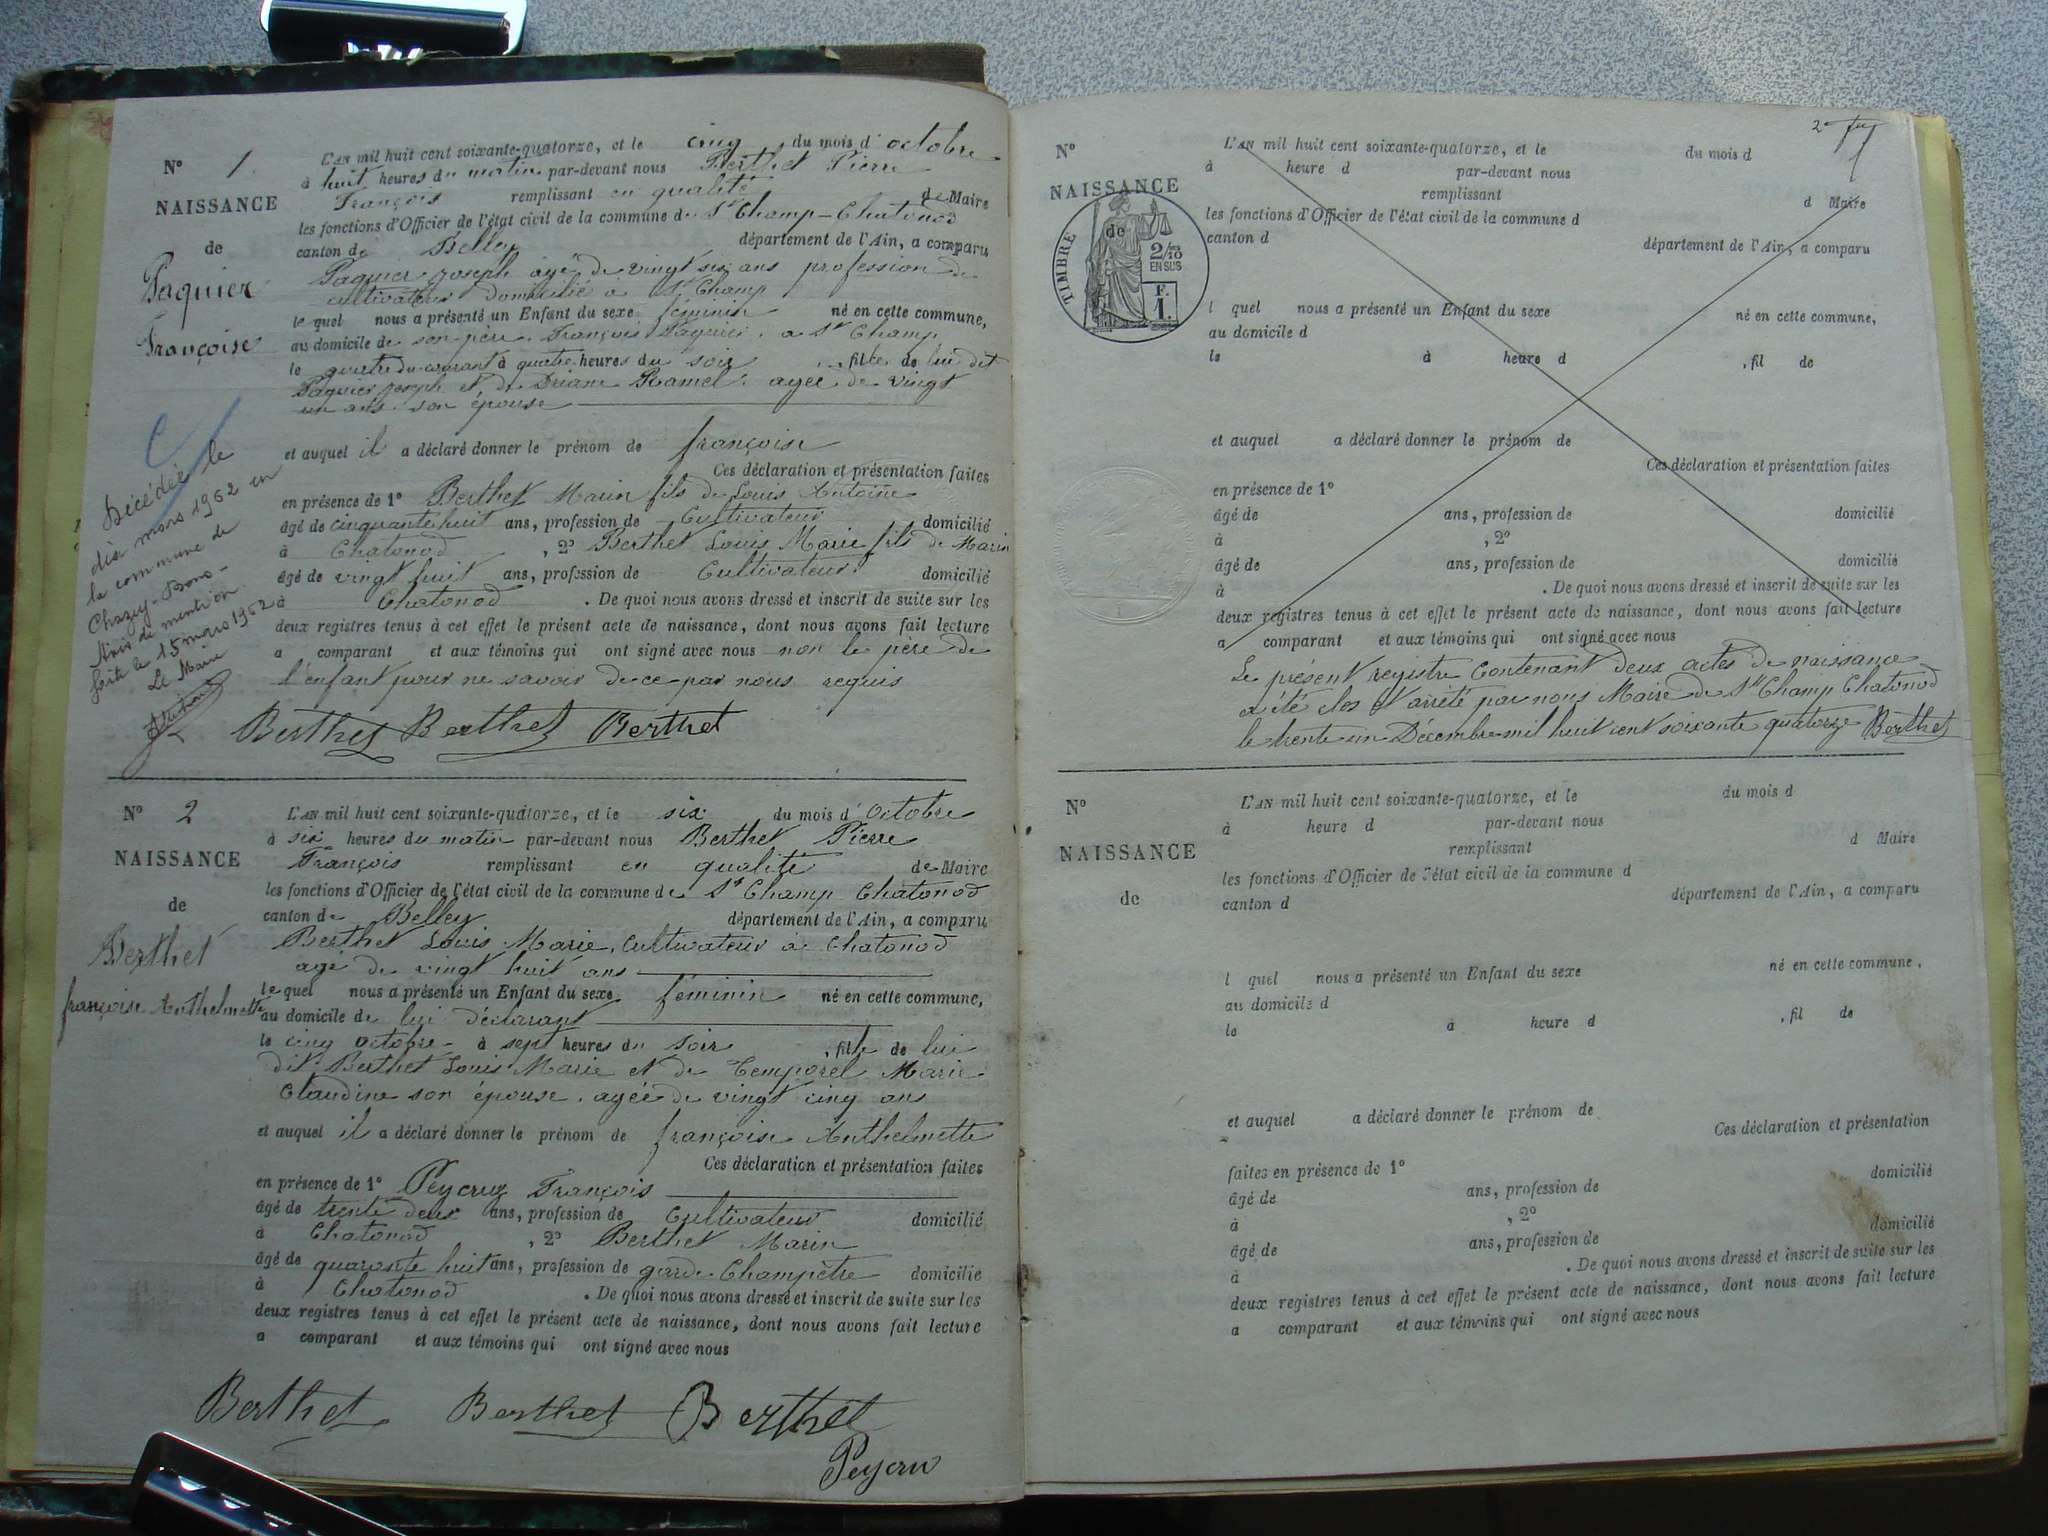 N° 1.
NAISSANCE
de
Paquier
Françoise
L'AN mil huit cent soixante-quatorze, et le cinq du mois d'octobre
à huit heures du matin par-devant nous Berthet Pierre
François remplissant en qualité de Maire
les fonctions d'Officier de l'état civil de la commune de St Champ-Chatonod
canton de Belley département de l'Ain, a comparu
Paquier Joseph âgé de vingt six ans profession de
cultivateur domicilié a St Champ
le quel nous a présenté un Enfant du sexe féminin né en cette commune,
au domicile de son père François Paquier, a St Champ
le quatre du courant à quatre heures du soir , fille de lui dit
Paquier Joseph et de Driane Ramel agée de vingt
un ans son épouse
et auquel il a déclaré donner le prénom de françoise
Ces déclaration et présentation faites
en présence de 1° Berthet Marin fils de Louis Antoine
âgé de cinquante huit ans, profession de Cultivateur domicilié
à Chatonod , 2° Berthet Louis Marie fils de Marin
âgé de vingt huit ans, profession de Cultivateur domicilié
à Chatonod . De quoi nous avons dressé et inscrit de suite sur les
deux registres tenus à cet effet le présent acte de naissance, dont nous avons fait lecture
a comparant et aux témoins qui ont signé avec nous non le père de
l'enfant pour ne savoir de ce par nous requis
Berthet Berthet Berthet
Décédée le
dix mars 1962 en
la commune de
Chazey-Bons-
Avis de mention
faite le 15 mars 1962
Le Maire
N° 2
NAISSANCE
de
Berthet
françoise Anthelmette
L'AN mil huit cent soixante-quatorze, et le six du mois d'Octobre
à six heures du matin par-devant nous Berthet Pierre
François remplissant en qualité de Maire
les fonctions d'Officier de l'état civil de la commune de St Champ Chatonod
canton de Belley département de l'Ain, a comparu
Berthet Louis Marie, Cultivateur a Chatonod
agé de vingt huit ans
le quel nous a présenté un Enfant du sexe féminin né en cette commune,
au domicile de lui déclarant
le cinq octobre à sept heures du soir , fille de lui
dit Berthet Louis Marie et de Temporel Marie
Claudine son épouse, agée de vingt cinq ans
et auquel il a déclaré donner le prénom de françoise Anthelmette
Ces déclaration et présentation faites
en présence de 1° Peycruz François
âgé de trente deux ans, profession de Cultivateur domicilié
à Chatonod , 2° Berthet Marin
âgé de quarante huit ans, profession de garde Champêtre domicilié
à Chatonod . De quoi nous avons dressé et inscrit de suite sur les
deux registres tenus à cet effet le présent acte de naissance, dont nous avons fait lecture
a comparant et aux témoins qui ont signé avec nous
Berthet Berthet Berthet
Peycru
2
N°
NAISSANCE
de
TIMBRE
2/10
EN SUS
F.
1.
L'AN mil huit cent soixante-quatorze, et le du mois d
à heure d par-devant nous
remplissant d Maire
les fonctions d'Officier de l'état civil de la commune d
canton d département de l'Ain, a comparu
l quel nous a présenté un Enfant du sexe né en cette commune,
au domicile d
le à heure d , fil de
et auquel a déclaré donner le prénom de
Ces déclaration et présentation faites
en présence de 1°
âgé de ans, profession de domicilié
à , 2°
âgé de ans, profession de domicilié
à . De quoi nous avons dressé et inscrit de suite sur les
deux registres tenus à cet effet le présent acte de naissance, dont nous avons fait lecture
a comparant et aux témoins qui ont signé avec nous
Le présent registre Contenant deux actes de naissance
a été clos et arrêté par nous Maire de St Champ Chatonod
le trente un Décembre mil huit cent soixante quatorze Berthet
N°
NAISSANCE
de
L'AN mil huit cent soixante-quatorze, et le du mois d
à heure d par-devant nous
remplissant d Maire
les fonctions d'Officier de l'état civil de la commune d
canton d département de l'Ain, a comparu
l quel nous a présenté un Enfant du sexe né en cette commune,
au domicile d
le à heure d , fil de
et auquel a déclaré donner le prénom de
Ces déclaration et présentation
faites en présence de 1° domicilié
âgé de ans, profession de
à , 2° domicilié
âgé de ans, profession de
à . De quoi nous avons dressé et inscrit de suite sur les
deux registres tenus à cet effet le présent acte de naissance, dont nous avons fait lecture
a comparant et aux témoins qui ont signé avec nous